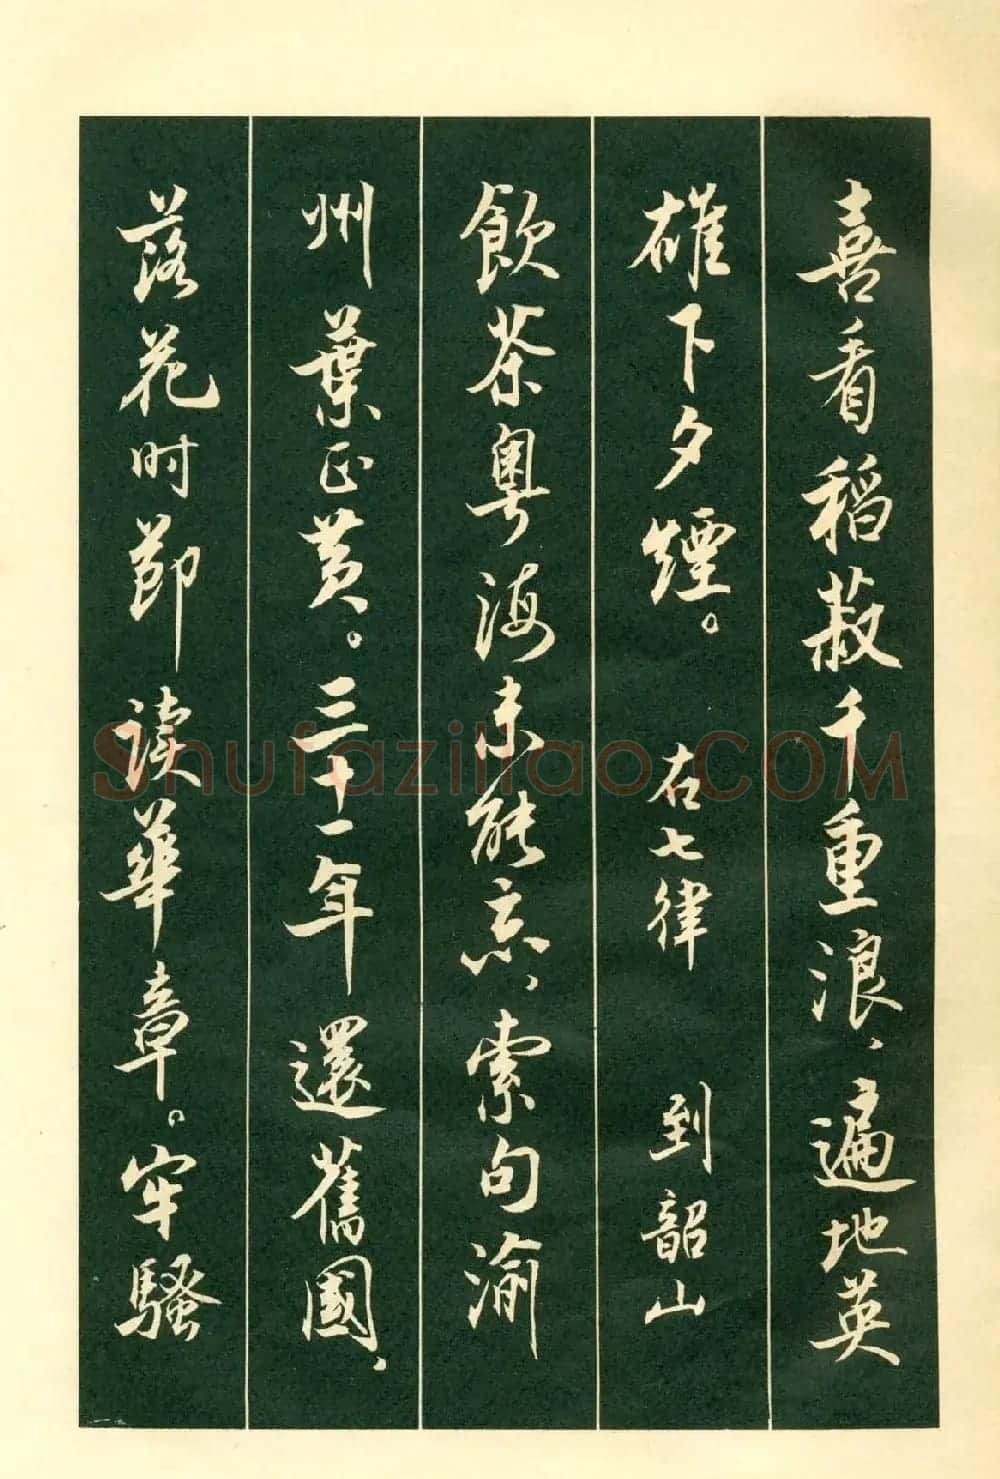 喜看稻菽千重浪、遍地英
雄下夕煙。 右七律 到韶山
飲茶粵海未能忘、索句渝
州葉正黃。三十一年還舊國、
落花时節读華章。牢騷
Shufaziliao.COM